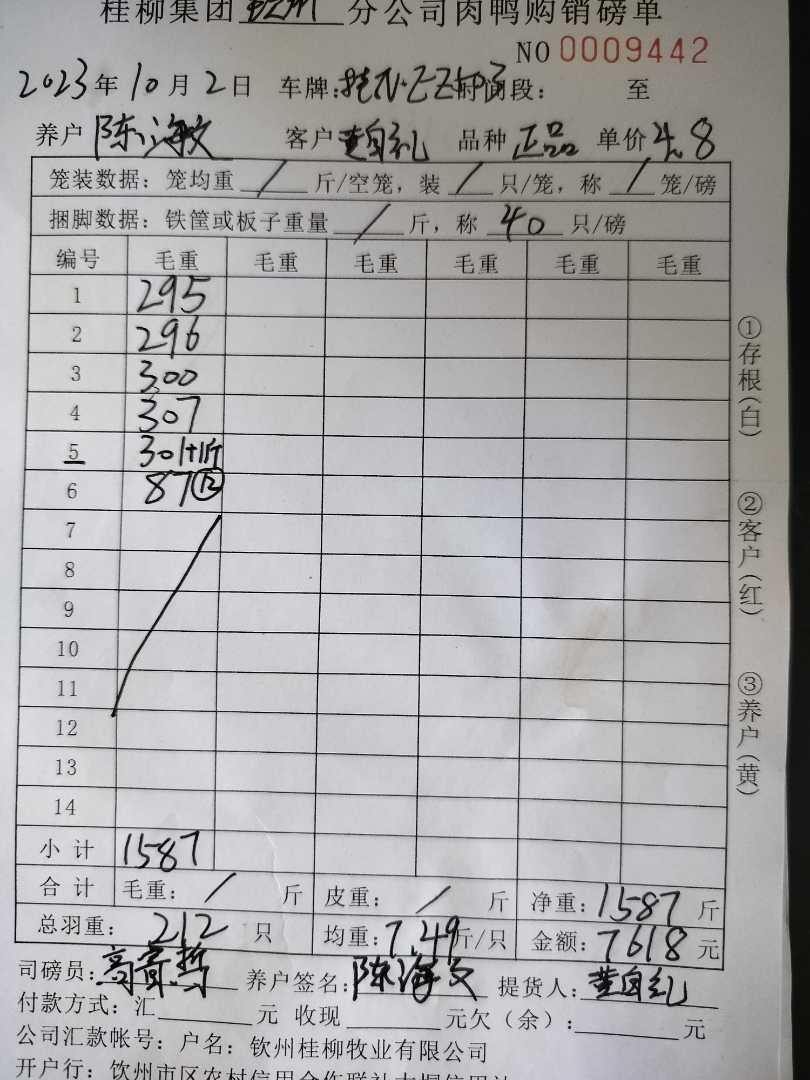 桂柳集团 钦州 分公司肉鸭购销磅单
NO 0009442
2023年10月2日 车牌: 时间段: 至
养户 陈海文 客户 黄自礼 品种 正品 单价 4.8
笼装数据: 笼均重 / 斤/空笼, 装 / 只/笼, 称 / 笼/磅
捆脚数据: 铁筐或板子重量 / 斤, 称 40 只/磅
编号 毛重 毛重 毛重 毛重 毛重 毛重
1 295
2 296
3 300
4 307
5 301+1斤
6 87⑫
7
8
9
10
11
12
13
14
小计 1587
合计 毛重: / 斤 皮重: / 斤 净重: 1587 斤
总羽重: 212 只 均重: 7.49 斤/只 金额: 7618 元
司磅员: 养户签名: 陈海文 提货人: 黄自礼
付款方式: 汇 元 收现 元欠(余): 元
公司汇款帐号: 户名: 钦州桂柳牧业有限公司
开户行: 钦州市区农村信用合作联社大垌信用社
①存根(白)
②客户(红)
③养户(黄)